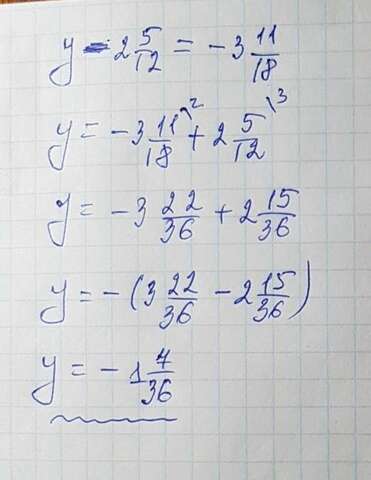 y - 2 5/12 = -3 11/18
y = -3 11/18 \2 + 2 5/12 \3
y = -3 22/36 + 2 15/36
y = -(3 22/36 - 2 15/36)
y = -1 7/36